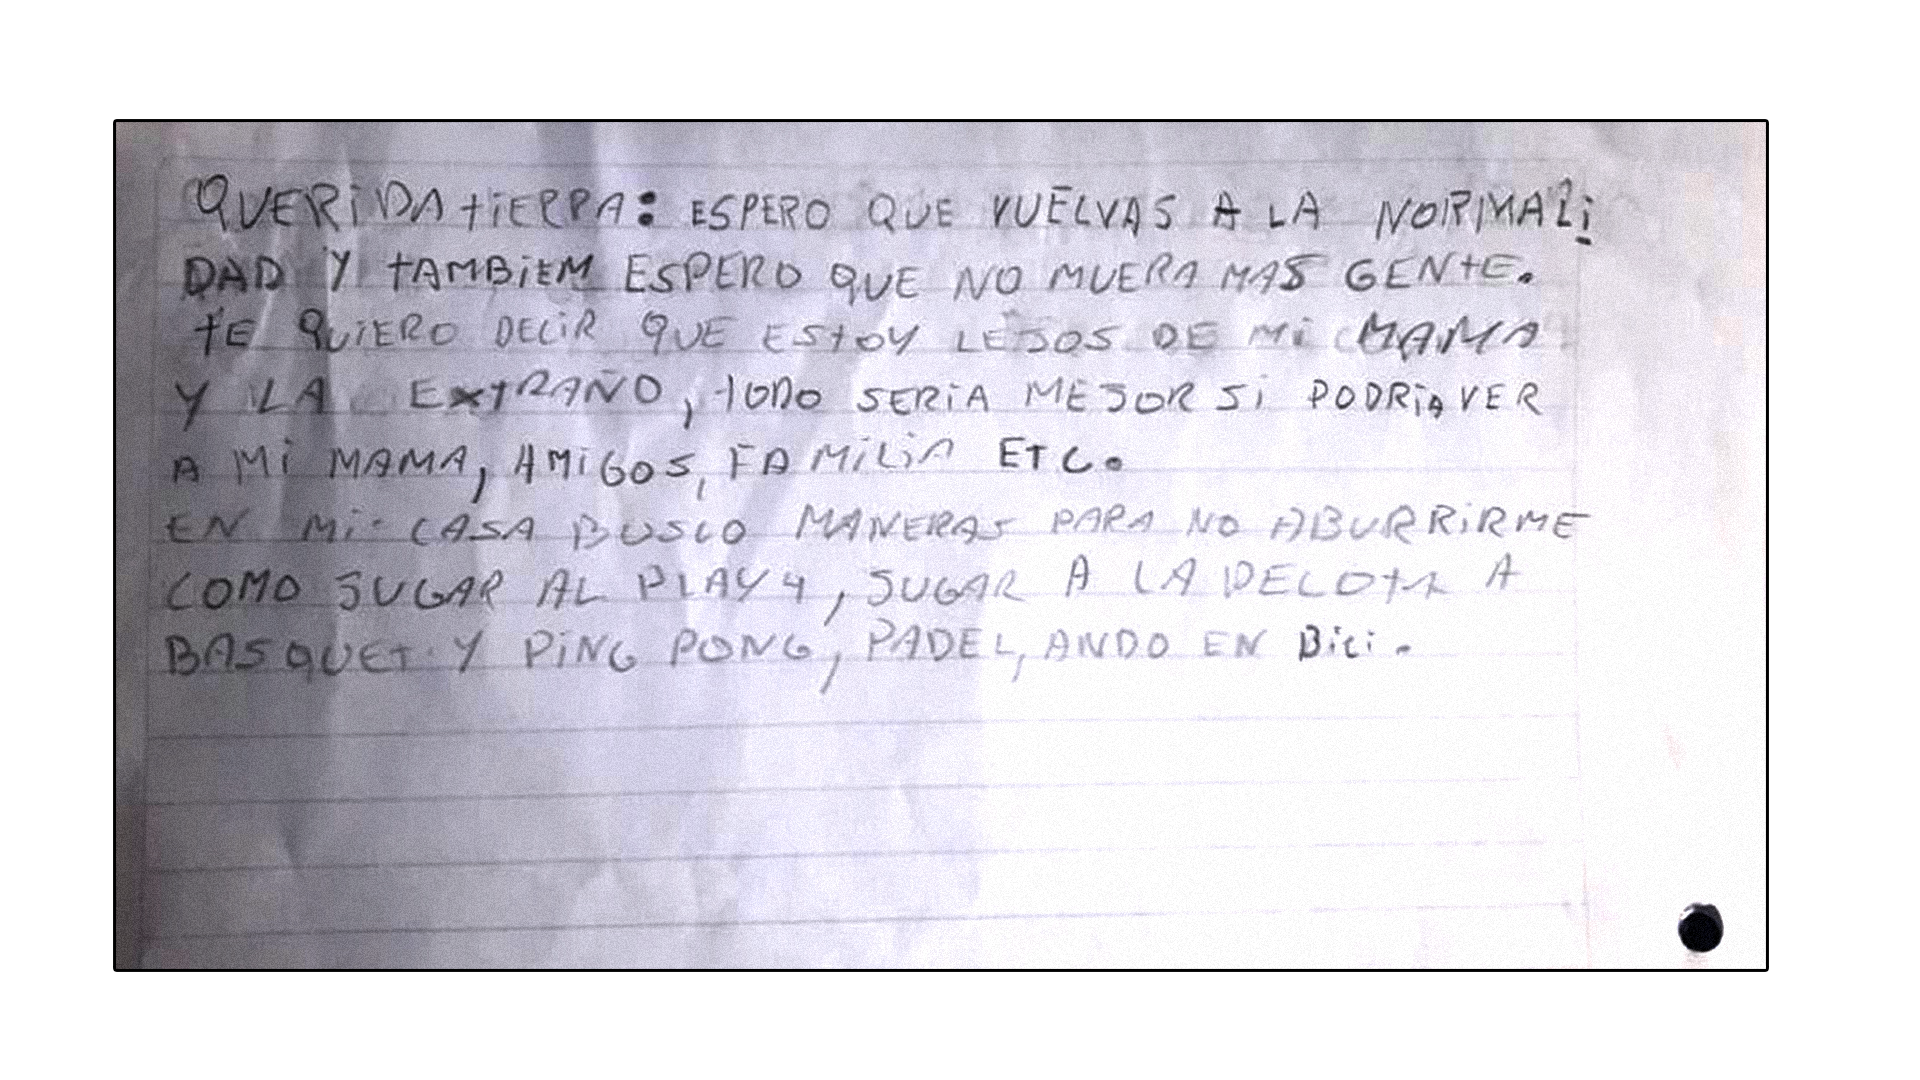 QUERIDA TIERRA: ESPERO QUE VUELVAS A LA NORMALI
DAD Y TAMBIEM ESPERO QUE NO MUERA MAS GENTE.
TE QUIERO DECIR QUE ESTOY LEJOS DE MI MAMA
Y LA EXTRAÑO, TODO SERIA MEJOR SI PODRIA VER
A MI MAMA, AMIGOS, FAMILIA ETC.
EN MI CASA BUSCO MANERAS PARA NO ABURRIRME
COMO JUGAR AL PLAY 4, JUGAR A LA PELOTA A
BASQUET Y PING PONG, PADEL, ANDO EN BICI.